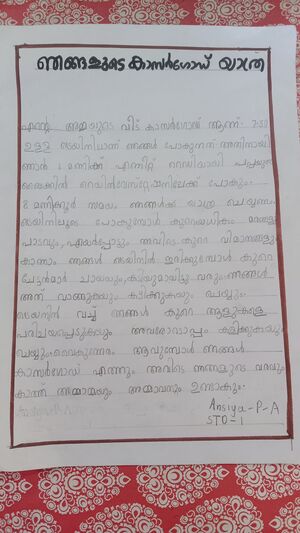 ഞങ്ങളുടെ കാസർഗോഡ് യാത്ര
എന്റെ അമ്മയുടെ വീട് കാസർഗോഡ് ആണ്. 7:50
ഉള്ള ട്രെയിനിലാണ് ഞങ്ങൾ പോകുന്നത്. അതിനായി
ഞാൻ മണിക്ക് എണീറ്റ് റെഡിയായി പപ്പയുടെ
ബൈക്കിൽ റെയിൽവേസ്റ്റേഷനിലേക്ക് പോകും.
8 മണിക്കൂർ സമയം ഞങ്ങൾക്ക് യാത്ര ചെയ്യണം.
ട്രെയിനിലൂടെ പോകുമ്പോൾ കുറെയധികം മരങ്ങളും
പാടവും, എയർപ്പോട്ടും അവിടെ കുറെ വിമാനങ്ങളും
കാണാം. ഞങ്ങൾ ട്രെയിനിൽ ഇരിക്കുമ്പോൾ കുറെ
ചേട്ടൻമാർ ചായയും, കടിയുമായിട്ടു വരും. ഞങ്ങൾ
അത് വാങ്ങുകയും കുടിക്കുകയും ചെയ്യും.
ട്രെയിനിൽ വച്ച് ഞങ്ങൾ കുറെ ആളുകളെ
പരിചയപ്പെടുകയും അവരോടൊപ്പം കളിക്കുകയും
ചെയ്യും. വൈകുന്നേരം ആവുമ്പോൾ ഞങ്ങൾ
കാസർഗോഡ് എത്തും. അവിടെ ഞങ്ങളുടെ വരവും
കാത്ത് അമ്മാമ്മയും അമ്മാവനും ഉണ്ടാകും.
Ansiya-P-A
STD-1